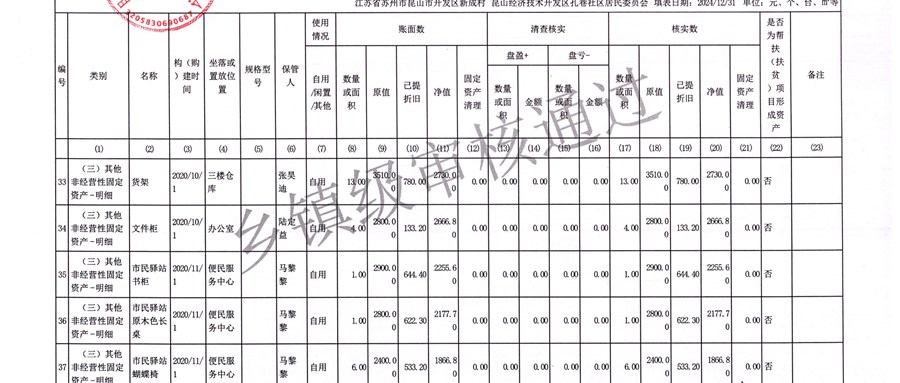 3205830690687
江苏省苏州市昆山市开发区新成村 昆山经济技术开发区孔巷社区居民委员会 填表日期：2024/12/31 单位：元、个、台、㎡等
编号 类别 名称 构（购）建时间 坐落或置放位置 规格型号 保管人 使用情况 账面数 清查核实 核实数 是否为帮扶（扶贫）项目形成资产 备注
盘盈+ 盘亏-
自用/闲置/其他 数量或面积 原值 已提折旧 净值 固定资产清理 数量或面积 金额 数量或面积 金额 数量或面积 原值 已提折旧 净值 固定资产清理
(1) (2) (3) (4) (5) (6) (7) (8) (9) (10) (11) (12) (13) (14) (15) (16) (17) (18) (19) (20) (21) (22) (23)
33 （三）其他非经营性固定资产-明细 货架 2020/10/1 三楼仓库 张昊迪 自用 13.00 3510.00 780.00 2730.00 0.00 0.00 0.00 0.00 0.00 13.00 3510.00 780.00 2730.00 0.00 否
34 （三）其他非经营性固定资产-明细 文件柜 2020/10/1 办公室 陆定益 自用 4.00 2800.00 133.20 2666.80 0.00 0.00 0.00 0.00 0.00 4.00 2800.00 133.20 2666.80 0.00 否
35 （三）其他非经营性固定资产-明细 市民驿站书柜 2020/11/1 便民服务中心 马黎黎 自用 1.00 2900.00 644.40 2255.60 0.00 0.00 0.00 0.00 0.00 1.00 2900.00 644.40 2255.60 0.00 否
36 （三）其他非经营性固定资产-明细 市民驿站原木色长桌 2020/11/1 便民服务中心 马黎黎 自用 1.00 2800.00 622.30 2177.70 0.00 0.00 0.00 0.00 0.00 1.00 2800.00 622.30 2177.70 0.00 否
37 （三）其他非经营性固定资产-明细 市民驿站蝴蝶椅 2020/11/1 便民服务中心 马黎黎 自用 6.00 2400.00 533.20 1866.80 0.00 0.00 0.00 0.00 0.00 6.00 2400.00 533.20 1866.80 0.00 否
乡镇级审核通过